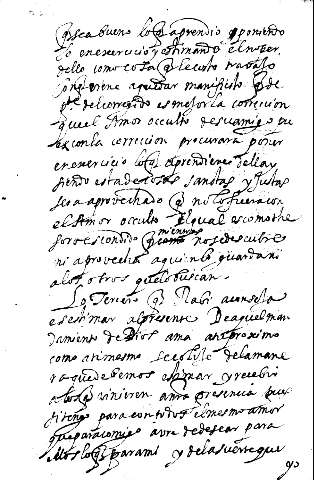 q sea bueno lo q aprendio y poniendo
lo en exercicio y estimando el saber
dello como cosa q le costo trabajo
conviene a quedar manifiesto q de
pte del corregido es mejor la correcion
que el Amor occulto de su amigo
con la correcion procurara poner
en exercicio lo q aprendiene della y
siendo esta de cosas sanctas y justas
sera aprovechado q no lo fuera con
el Amor occulto el qual es como the
soro escondido q mientras no se descubre
ni aprovecha a quien lo guarda ni
a los otros que lo buscan
Lo Tercero q Rabi aconseja
es estimar al presente De aquel man
damiento de Dios ama a tu proximo
como a ti mesmo se colije de la mane
ra que devemos estimar y recebir
a los q vinieren a nra presencia pues
si tengo para con todos el mesmo amor
que para comigo avre de desear para
ellos lo q para mi y de la suerte que